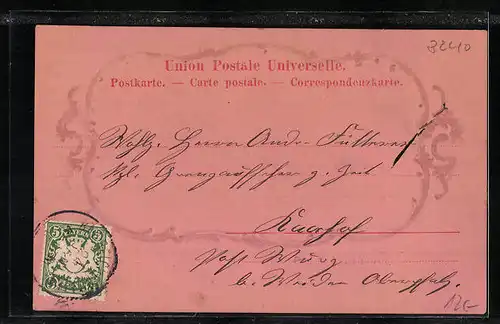 3240
Union Postale Universelle.
Postkarte. — Carte postale. — Correspondenzkarte.
Wohlg. Herrn Andr. Fütterer
Kgl. Grenzaufseher z. Zeit
Post
b. Weiden Oberpfalz.
5 BAYERN 5
12€